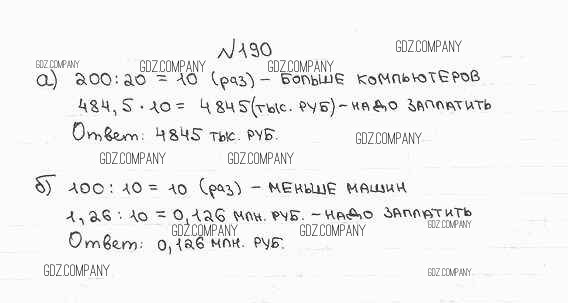 №190
GDZ.COMPANY
GDZ.COMPANY GDZ.COMPANY GDZ.COMPANY
а) 200:20 = 10 (раз) - БОЛЬШЕ КОМПЬЮТЕРОВ
484,5 · 10 = 4845 (тыс. РУБ) - НАДО ЗАПЛАТИТЬ
Ответ: 4845 тыс. РУБ.
GDZ.COMPANY
GDZ.COMPANY GDZ.COMPANY
б) 100:10 = 10 (раз) - МЕНЬШЕ МАШИН
1,26 : 10 = 0,126 МЛН. РУБ. - НАДО ЗАПЛАТИТЬ
GDZ.COMPANY GDZ.COMPANY GDZ.COMPANY
Ответ: 0,126 МЛН. РУБ.
GDZ.COMPANY GDZ.COMPANY